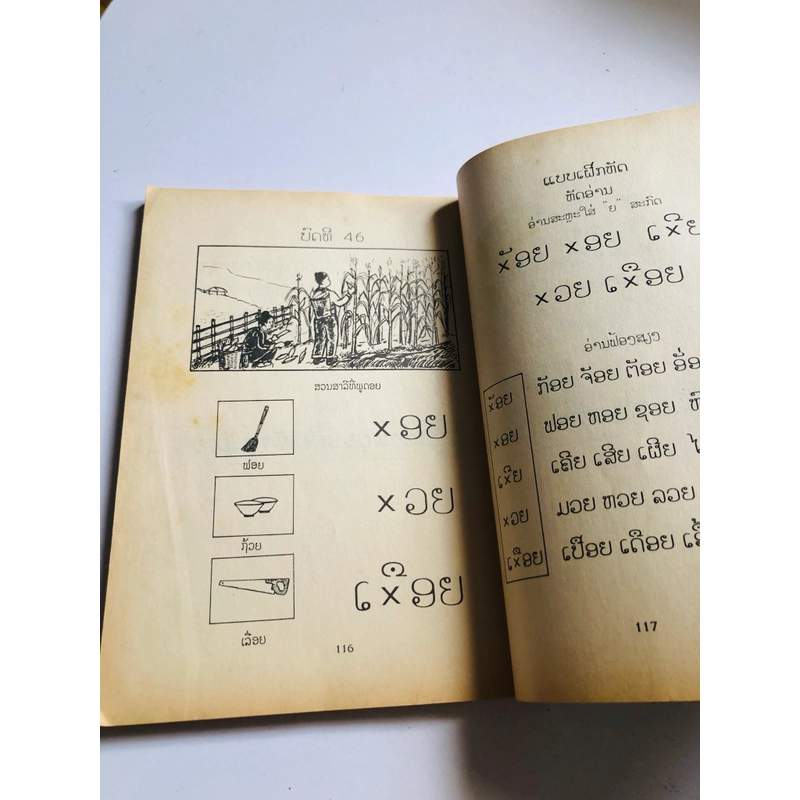 ບົດທີ 46
ສວນສາລີທີ່ພູດອຍ
xອຍ
ຟອຍ
xວຍ
ຖ້ວຍ
ເxືອຍ
ເລື່ອຍ
116
ແບບເຝິກຫັດ
ຫັດອ່ານ
ອ່ານສະຫຼະໃສ່ "ຍ" ສະກົດ
xັອຍ xອຍ ເxີຍ
xວຍ ເxືອຍ
ອ່ານຟັອງສຽງ
xັອຍ
xອຍ
ເxີຍ
xວຍ
ເxືອຍ
ກັອຍ ຈັອຍ ຕັອຍ
ຟອຍ ຫອຍ ຊອຍ
ເຄີຍ ເສີຍ ເຜີຍ
ມວຍ ຫວຍ ລວຍ
ເປືອຍ ເດືອຍ
117